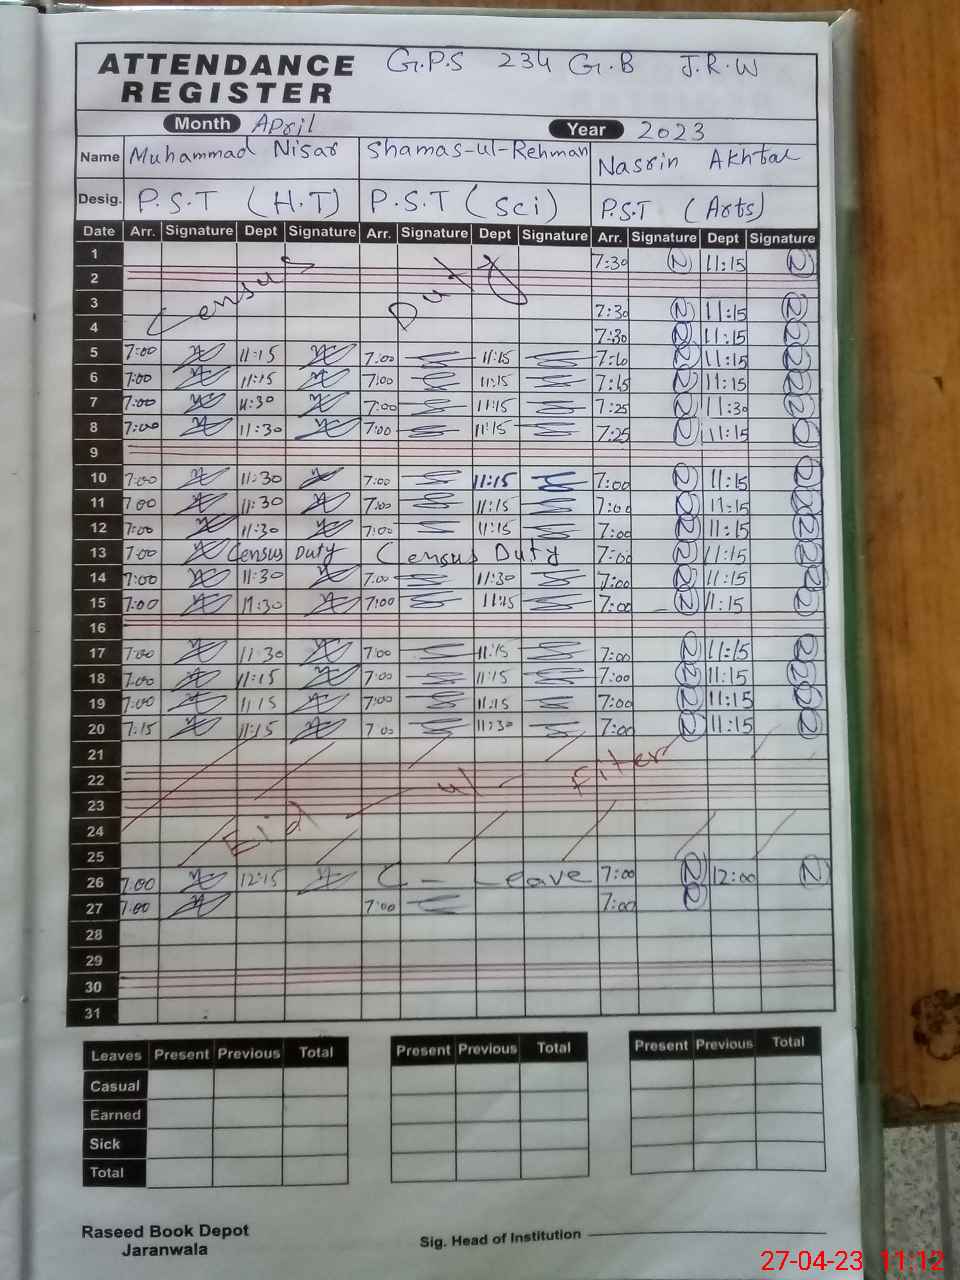 ATTENDANCE G.P.S 234 G.B J.R.W
REGISTER
Month April Year 2023
Name Muhammad Nisar Shamas-ul-Rehman Nasrin Akhtar
Desig. P.S.T (H.T) P.S.T (Sci) P.S.T (Arts)
Date Arr. Signature Dept Signature Arr. Signature Dept Signature Arr. Signature Dept Signature
1 7:30 11:15
2 Census Duty
3 7:30 11:15
4 7:30 11:15
5 7:00 11:15 7:00 11:15 11:15
6 7:00 11:15 7:00 11:15 7:15 11:15
7 7:00 11:30 7:00 11:15 7:25 11:30
8 7:00 11:30 7:00 11:15 7:25 11:15
9
10 7:00 11:30 7:00 11:15 7:00 11:15
11 7:00 11:30 7:00 11:15 7:00 11:15
12 7:00 11:30 7:00 11:15 7:00 11:15
13 7:00 Census Duty Census Duty 7:00 11:15
14 7:00 11:30 7:00 11:30 7:00 11:15
15 7:00 11:30 7:00 11:15 7:00 11:15
16
17 7:00 11:30 7:00 11:15 7:00 11:15
18 7:00 11:15 7:00 11:15 7:00 11:15
19 7:00 11:15 7:00 11:15 7:00 11:15
20 7:15 11:15 7:00 11:30 7:00 11:15
21
22
23 Eid - ul - Fiter
24
25
26 7:00 12:15 C - Leave 7:00 12:00
27 7:00 7:00 7:00
28
29
30
31
Leaves Present Previous Total Present Previous Total Present Previous Total
Casual
Earned
Sick
Total
Raseed Book Depot
Jaranwala
Sig. Head of Institution
27-04-23 11:12